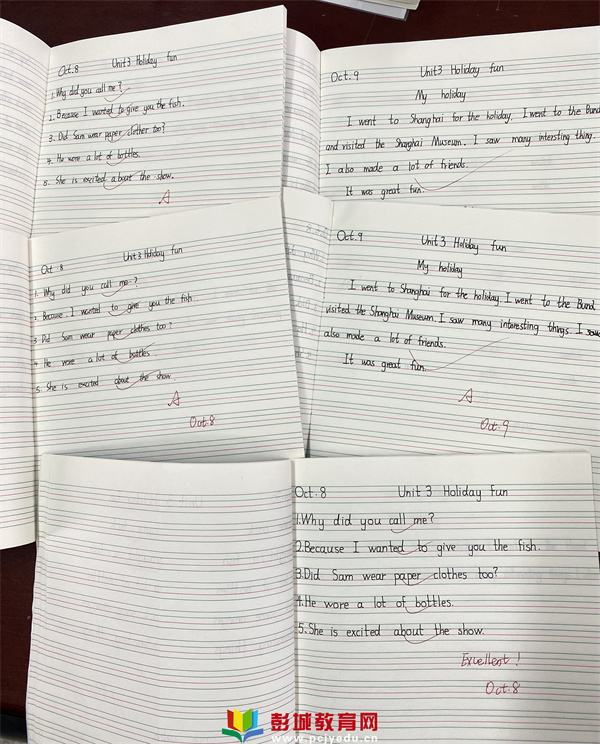 Oct. 8 Unit 3 Holiday fun
1. Why did you call me?
2. Because I wanted to give you the fish.
3. Did Sam wear paper clother too?
4. He wore a lot of bottles.
5. She is excited about the show.
A
Oct. 9 Unit 3 Holiday fun
My holiday
I went to Shanghai for the holiday. I went to the Bund
and visited the Shanghai Museum. I saw many intersting thing.
I also made a lot of friends.
It was great fun.
Oct. 8 Unit 3 Holiday fun
1. Why did you call me?
2. Because I wanted to give you the fish.
3. Did Sam wear paper clothes too?
4. He wore a lot of bottles.
5. She is excited about the show.
A
Oct. 8
Oct. 9 Unit 3 Holiday fun
My holiday
I went to Shanghai for the holiday. I went to the Bund
visited the Shanghai Museum. I saw many interesting things. I saw
also made a lot of friends.
It was great fun.
A
Oct. 9
Oct. 8 Unit 3 Holiday fun
1. Why did you call me?
2. Because I wanted to give you the fish.
3. Did Sam wear paper clothes too?
4. He wore a lot of bottles.
5. She is excited about the show.
Excellent!
Oct. 8
彭城教育网
www.pcjyedu.cn